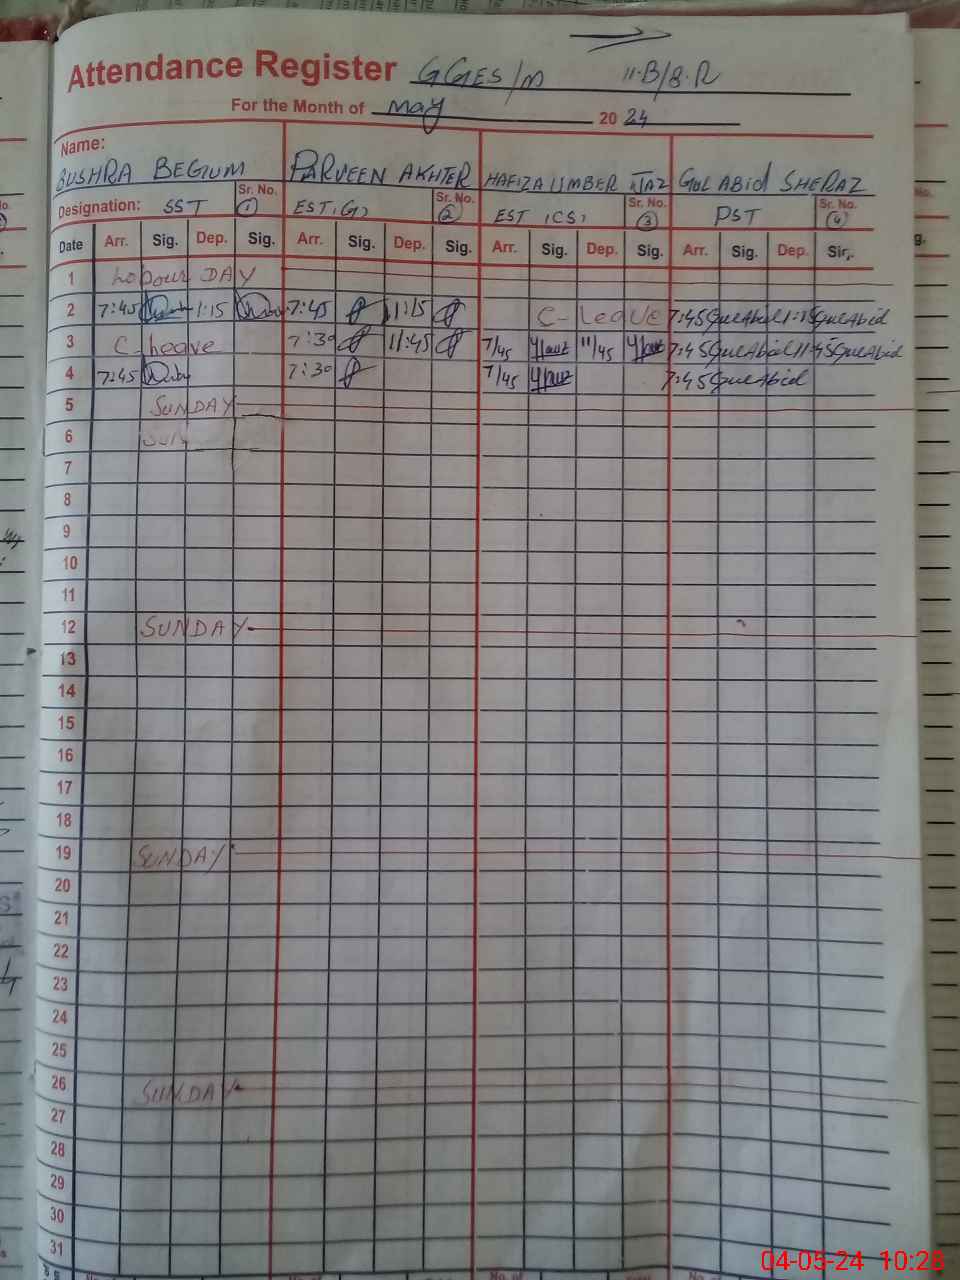 Attendance Register GGES/M 11-B/8.R
For the Month of May 2024
Name:
BUSHRA BEGUM PARVEEN AKHTER HAFIZA UMBER IJAZ GUL ABid SHERAZ
Designation: SST Sr. No. 1 EST(G) Sr. No. 2 EST (CS) Sr. No. 3 PST Sr. No. 4
Date Arr. Sig. Dep. Sig. Arr. Sig. Dep. Sig. Arr. Sig. Dep. Sig. Arr. Sig. Dep. Sir,.
1 Labour DAY
2 7:45 1:15 7:45 1:15 C-Leave 7:45 GulAbid 1:15 GulAbid
3 C-Leave 7:30 11:45 7/45 11/45 7:45 GulAbid 11:45 GulAbid
4 7:45 7:30 7/45 7:45 GulAbid
5 SUNDAY
6 SUN
7
8
9
10
11
12 SUNDAY
13
14
15
16
17
18
19 SUNDAY
20
21
22
23
24
25
26 SUNDAY
27
28
29
30
31
04-05-24 10:28